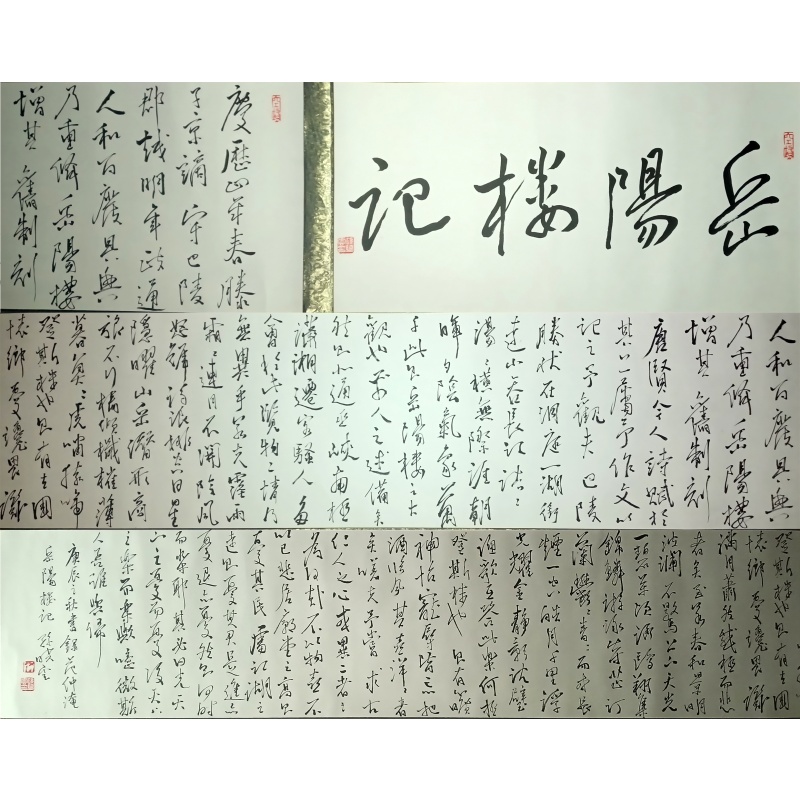 岳陽楼记
慶歷四年春滕
子京謫守巴陵
郡越明年政通
人和百廢具興
乃重修岳陽樓
增其舊制刻
人和百廢具興
乃重修岳陽樓
增其舊制刻
唐賢今人詩賦於
其上屬予作文以
記之予觀夫巴陵
勝狀在洞庭一湖銜
遠山吞長江浩々
湯々橫無際涯朝
暉夕陰氣象萬
千此則岳陽樓之大
觀也前人之述備矣
然則北通巫峽南極
瀟湘遷客騷人多
會於此覽物之情得
無異乎若夫霪雨
霏々連月不開陰風
怒號濁浪排空日星
隱曜山岳潛形商
旅不行檣傾楫摧薄
暮冥々虎嘯猿啼
登斯樓也則有去國
懷鄉憂讒畏譏
登斯樓也則有去國
懷鄉憂讒畏譏
滿目蕭然感極而悲
者矣至若春和景明
波瀾不驚上下天光
一碧萬頃沙鷗翔集
錦鱗游泳岸芷汀
蘭郁々青々而或長
煙一空皓月千里浮
光耀金靜影沉璧
漁歌互答此樂何極
登斯樓也則有心曠
神怡寵辱皆忘把
酒臨風其喜洋々者
矣嗟夫予嘗求古
仁人之心或異二者之
為何哉不以物喜不
以己悲居廟堂之高則
憂其民處江湖之
遠則憂其君是進亦
憂退亦憂然則何時
而樂耶其必曰先天
下之憂而憂後天下
之樂而樂歟噫微斯
人吾誰與歸
庚辰之秋書錄范仲淹
岳陽樓記